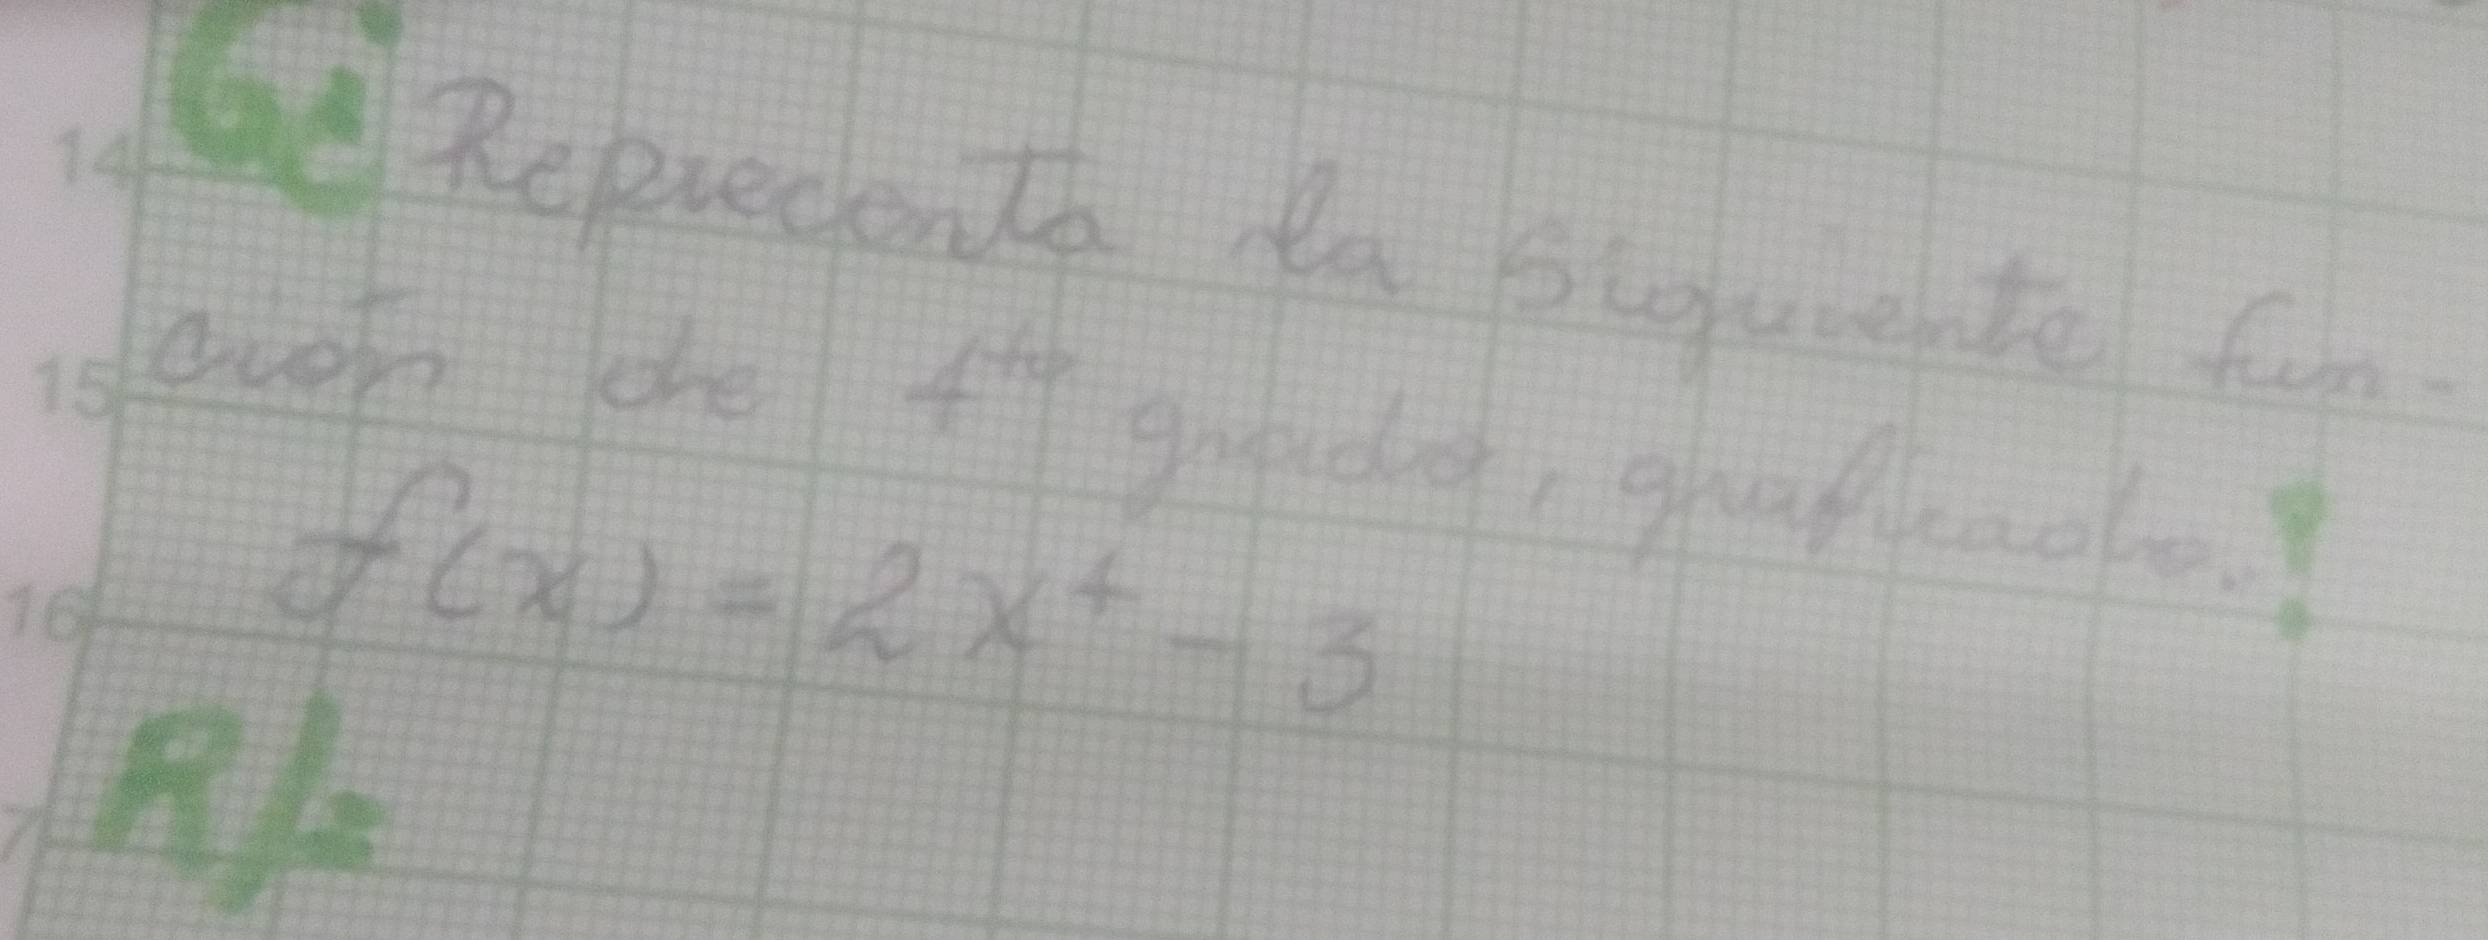 14 Reprecenta la siguiente fun-
15 ción de 4to grado, graficado.!
16 f(x) = 2x⁴ - 3
R/: